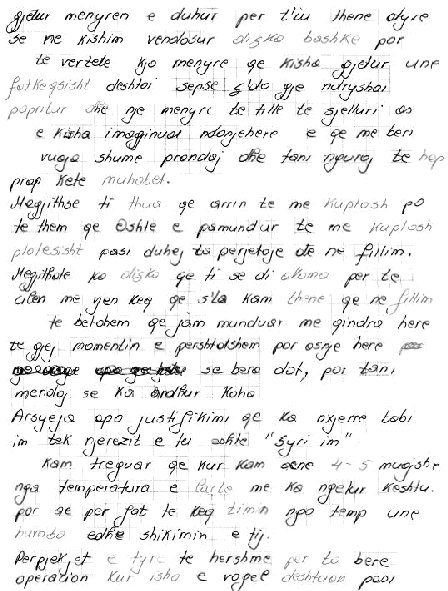 gjetur menyren e duhur per t'iu thene atyre
se ne kishim vendosur diçka bashke por
te vertete kjo menyre qe kisha gjetur une
fatkeqsisht deshtoi sepse ç'do gje ndryshoi
papritur dhe nje menyre te tille te sjelluri as
e kisha imagjinuar ndonjehere e qe me beri
vuaja shume prandaj dhe tani nguroj te hap
prap kete muhabet.
Megjithse ti thua qe arrin te me kuptosh po
te them qe eshte e pamundur te me kuptosh
plotesisht pasi duhej ta perjetoje qe ne fillim.
Megjithate ka diçka qe ti se di akoma per te
cilen me vjen keq qe s'ta kam thene qe ne fillim
te betohem qe jam munduar me qindra here
te gjej momentin e pershtatshem por asnje here
se bera dot, por tani
mendoj se ka ardhur koha
Arsyeja apo justifikimi qe ka nxjerre babi
im tek njerezit e tu eshte "syri im"
kam treguar qe kur kam qene 4-5 muajshe
nga temperatura e larte me ka ngelur keshtu.
por qe per fat te keq timin nga temp une
humba edhe shikimin e tij.
Perpjekjet e tyre te hershme per ta bere
operation kur isha e vogel deshtuan pasi